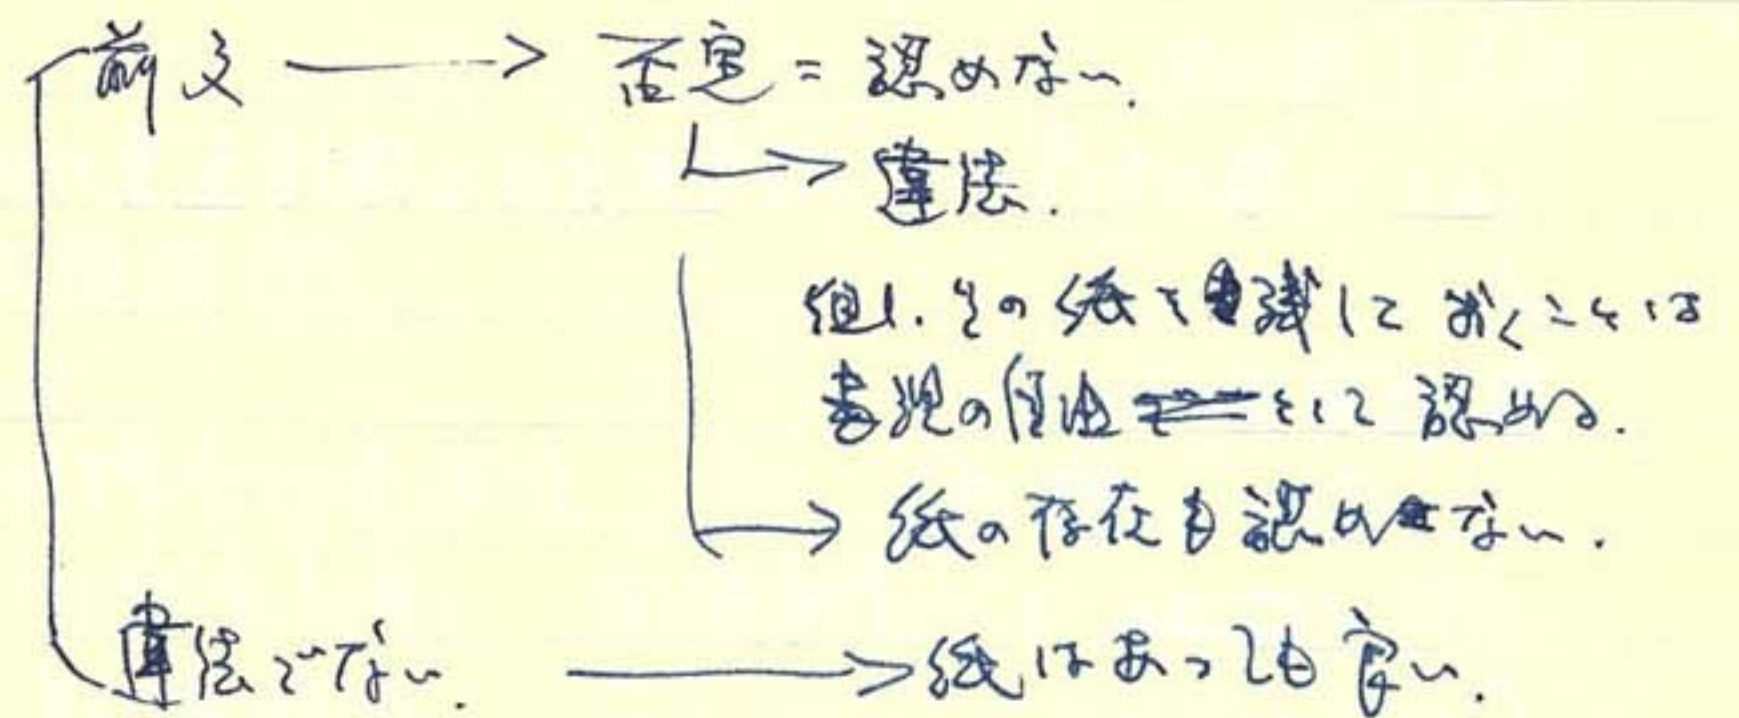 前文 → 否定 = 認めない.
→ 違法.
但し. その紙を残しておくことは
表現の自由として認める.
→ 紙の存在も認めない.
違法でない. → 紙はあっても良い.